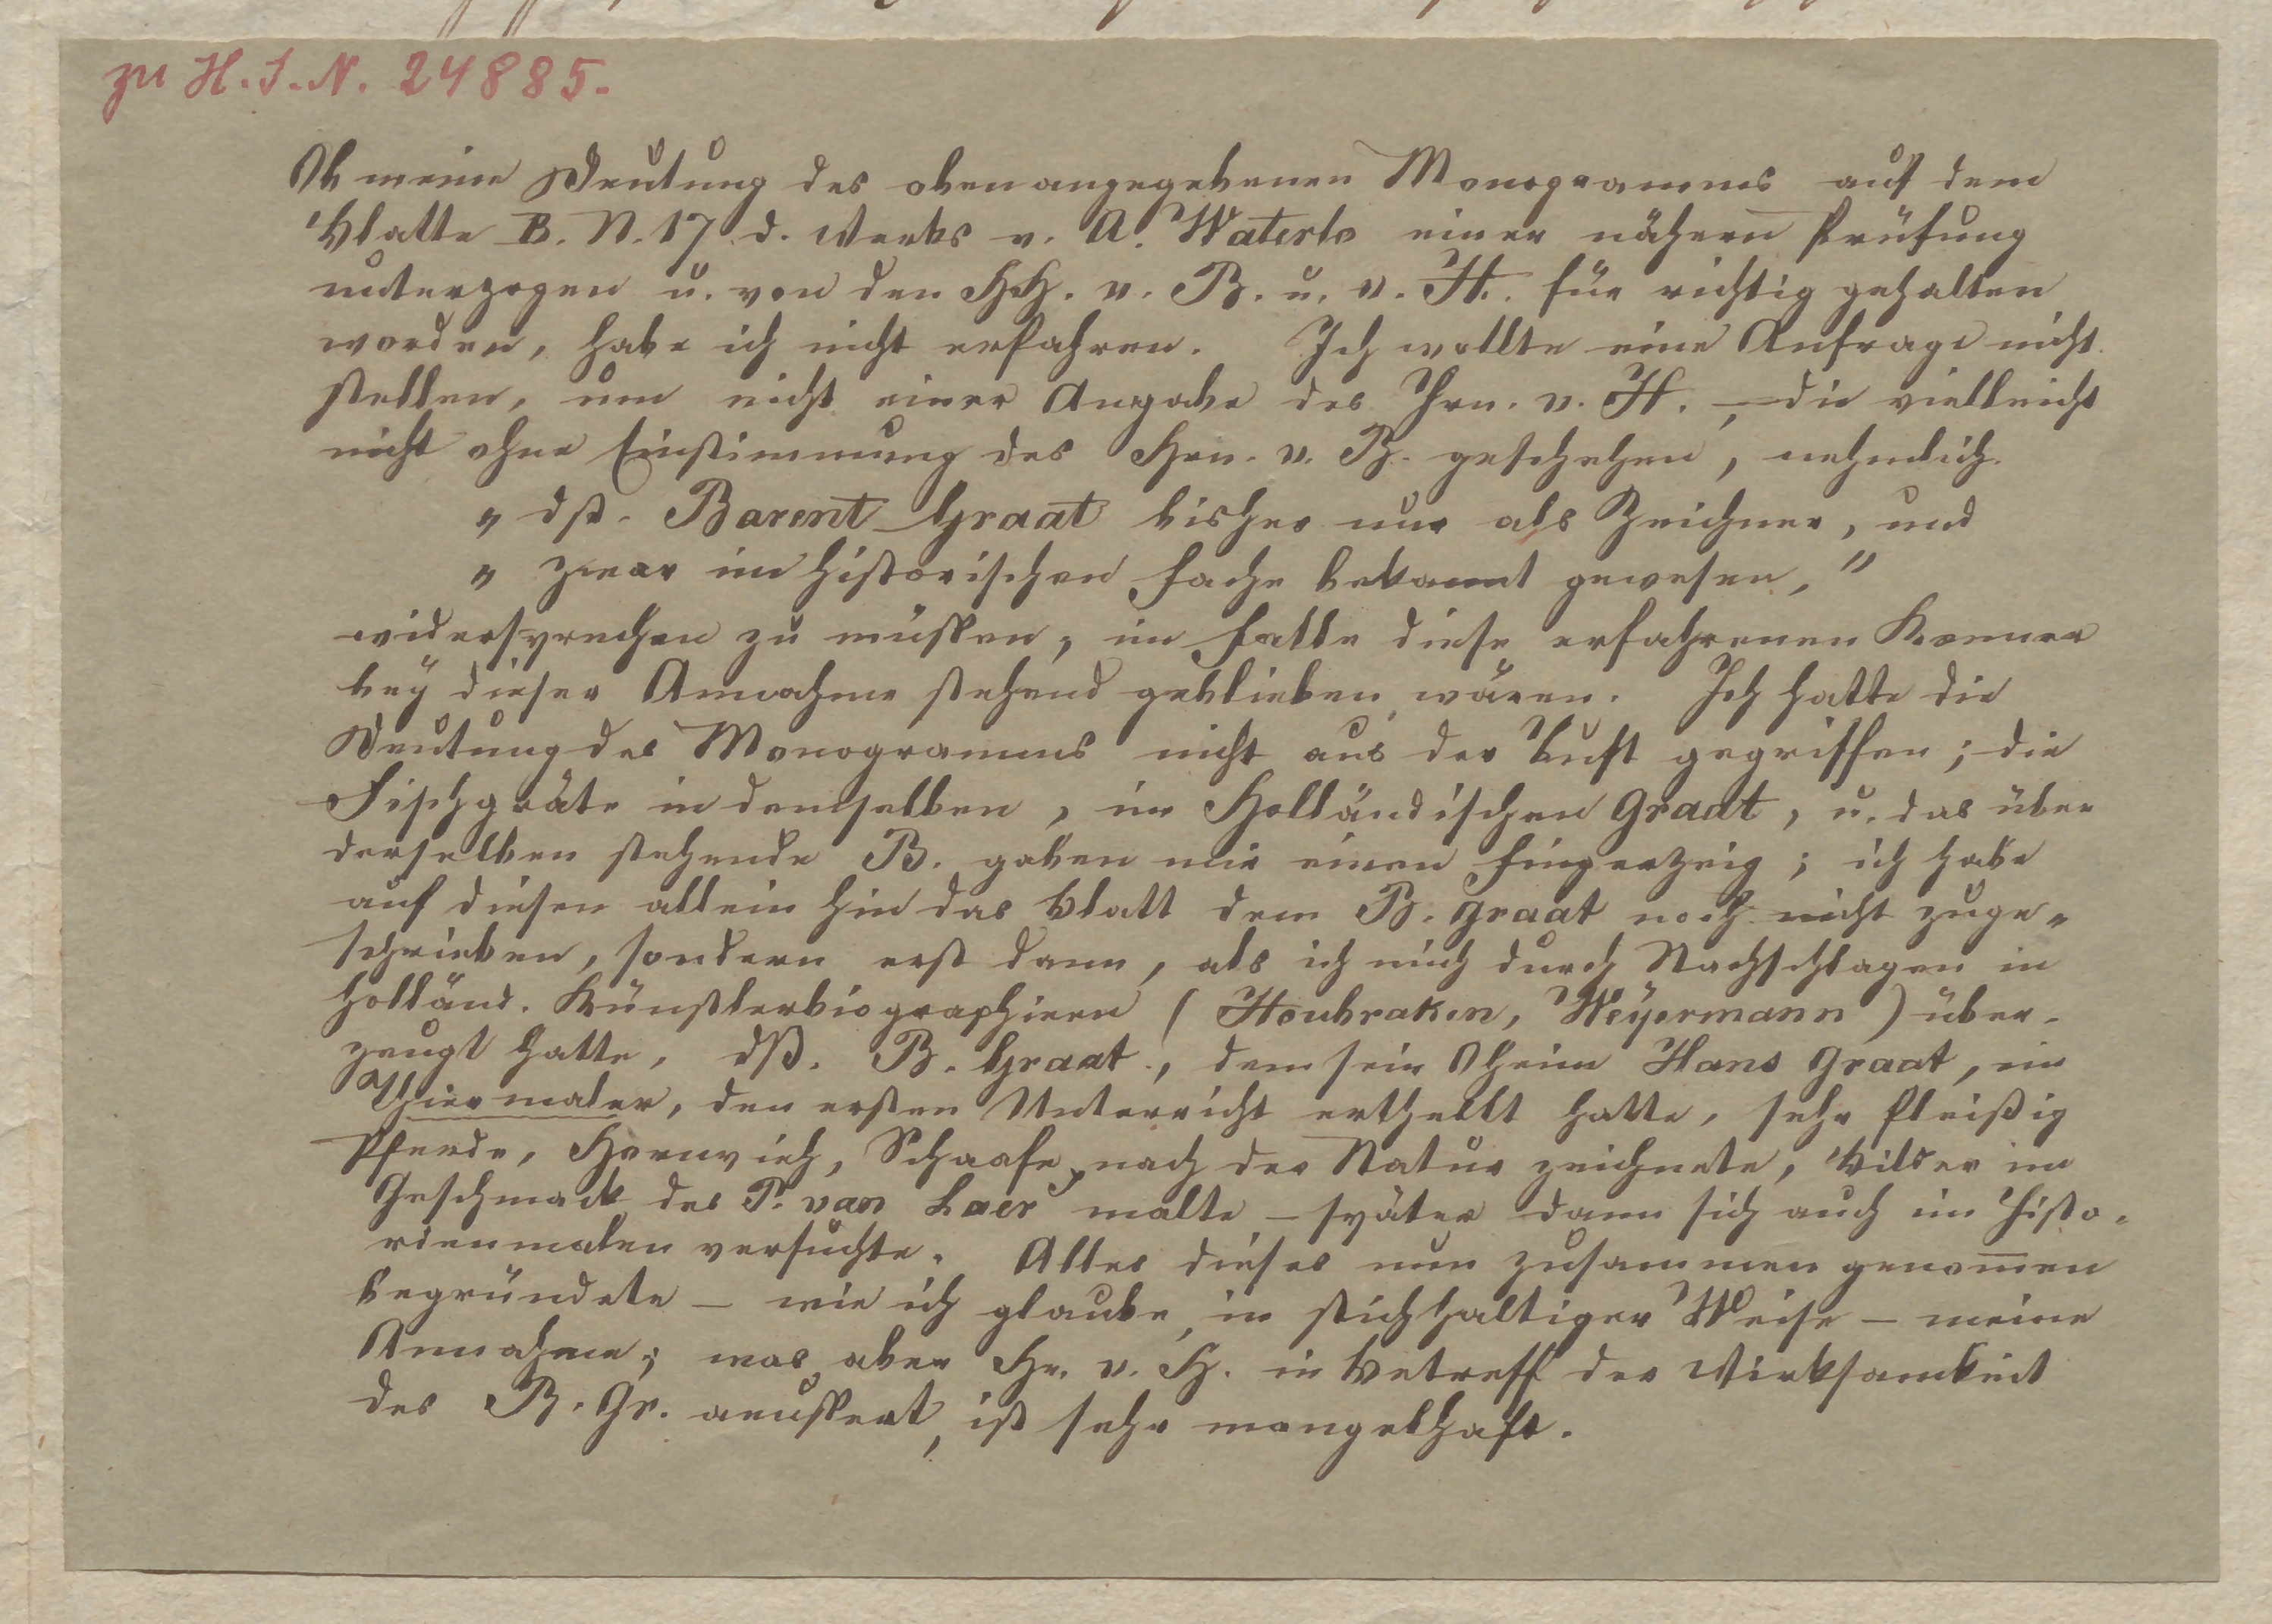 zu H.I.N. 24885.
Ob meine Deutung des obenangegebenen Monogramms auf dem
Blatte B. N. 17. d. Werks v. A. Waterlo einer nähern Prüfung
unterzogen u. von den HH. v. B. u. v. H. für richtig gehalten
worden, habe ich nicht erfahren. Ich wollte eine Anfrage nicht
stellen, um nicht einer Angabe des Hrn. v. H. – die vielleicht
nicht ohne Einstimmung des Hrn. v. B. geschehen, nehmlich
„ dß. Barent Graat bisher nur als Zeichner, und
„ zwar im historischen Fache bekannt gewesen,"
widersprechen zu müssen, im Falle diese erfahrenen Kenner
bey dieser Annahme stehend geblieben wären. Ich hatte die
Deutung des Monogramms nicht aus der Luft gegriffen; die
Fischgräte in demselben, im Holländischen Graat, u. das über
derselben stehende B. gaben mir einen Fingerzeig; ich habe
auf diesen allein hin das Blatt dem B. Graat noch nicht zuge„
schrieben, sondern erst dann, als ich mich durch Nachschlagen in
holländ. Künstlerbiographieen (Houbraken, Weÿermann) über„
zeugt hatte, dß. B. Graat, dem sein Oheim Hans Graat, ein
Thiermaler, den ersten Unterricht ertheilt hatte, sehr fleißig
Pferde, Hornvieh, Schaafe, nach der Natur zeichnete, Bilder im
Geschmack des P. van Laer malte – später dann sich auch im Histo„
rienmalen versuchte. Alles dieses nun zusammen genom̅en
begründete – wie ich glaube, in stichhaltiger Weise – meine
Annahme; was aber Hr. v. H. in Betreff der Wirksamkeit
des B. Gr. aeussert, ist sehr mangelhaft.